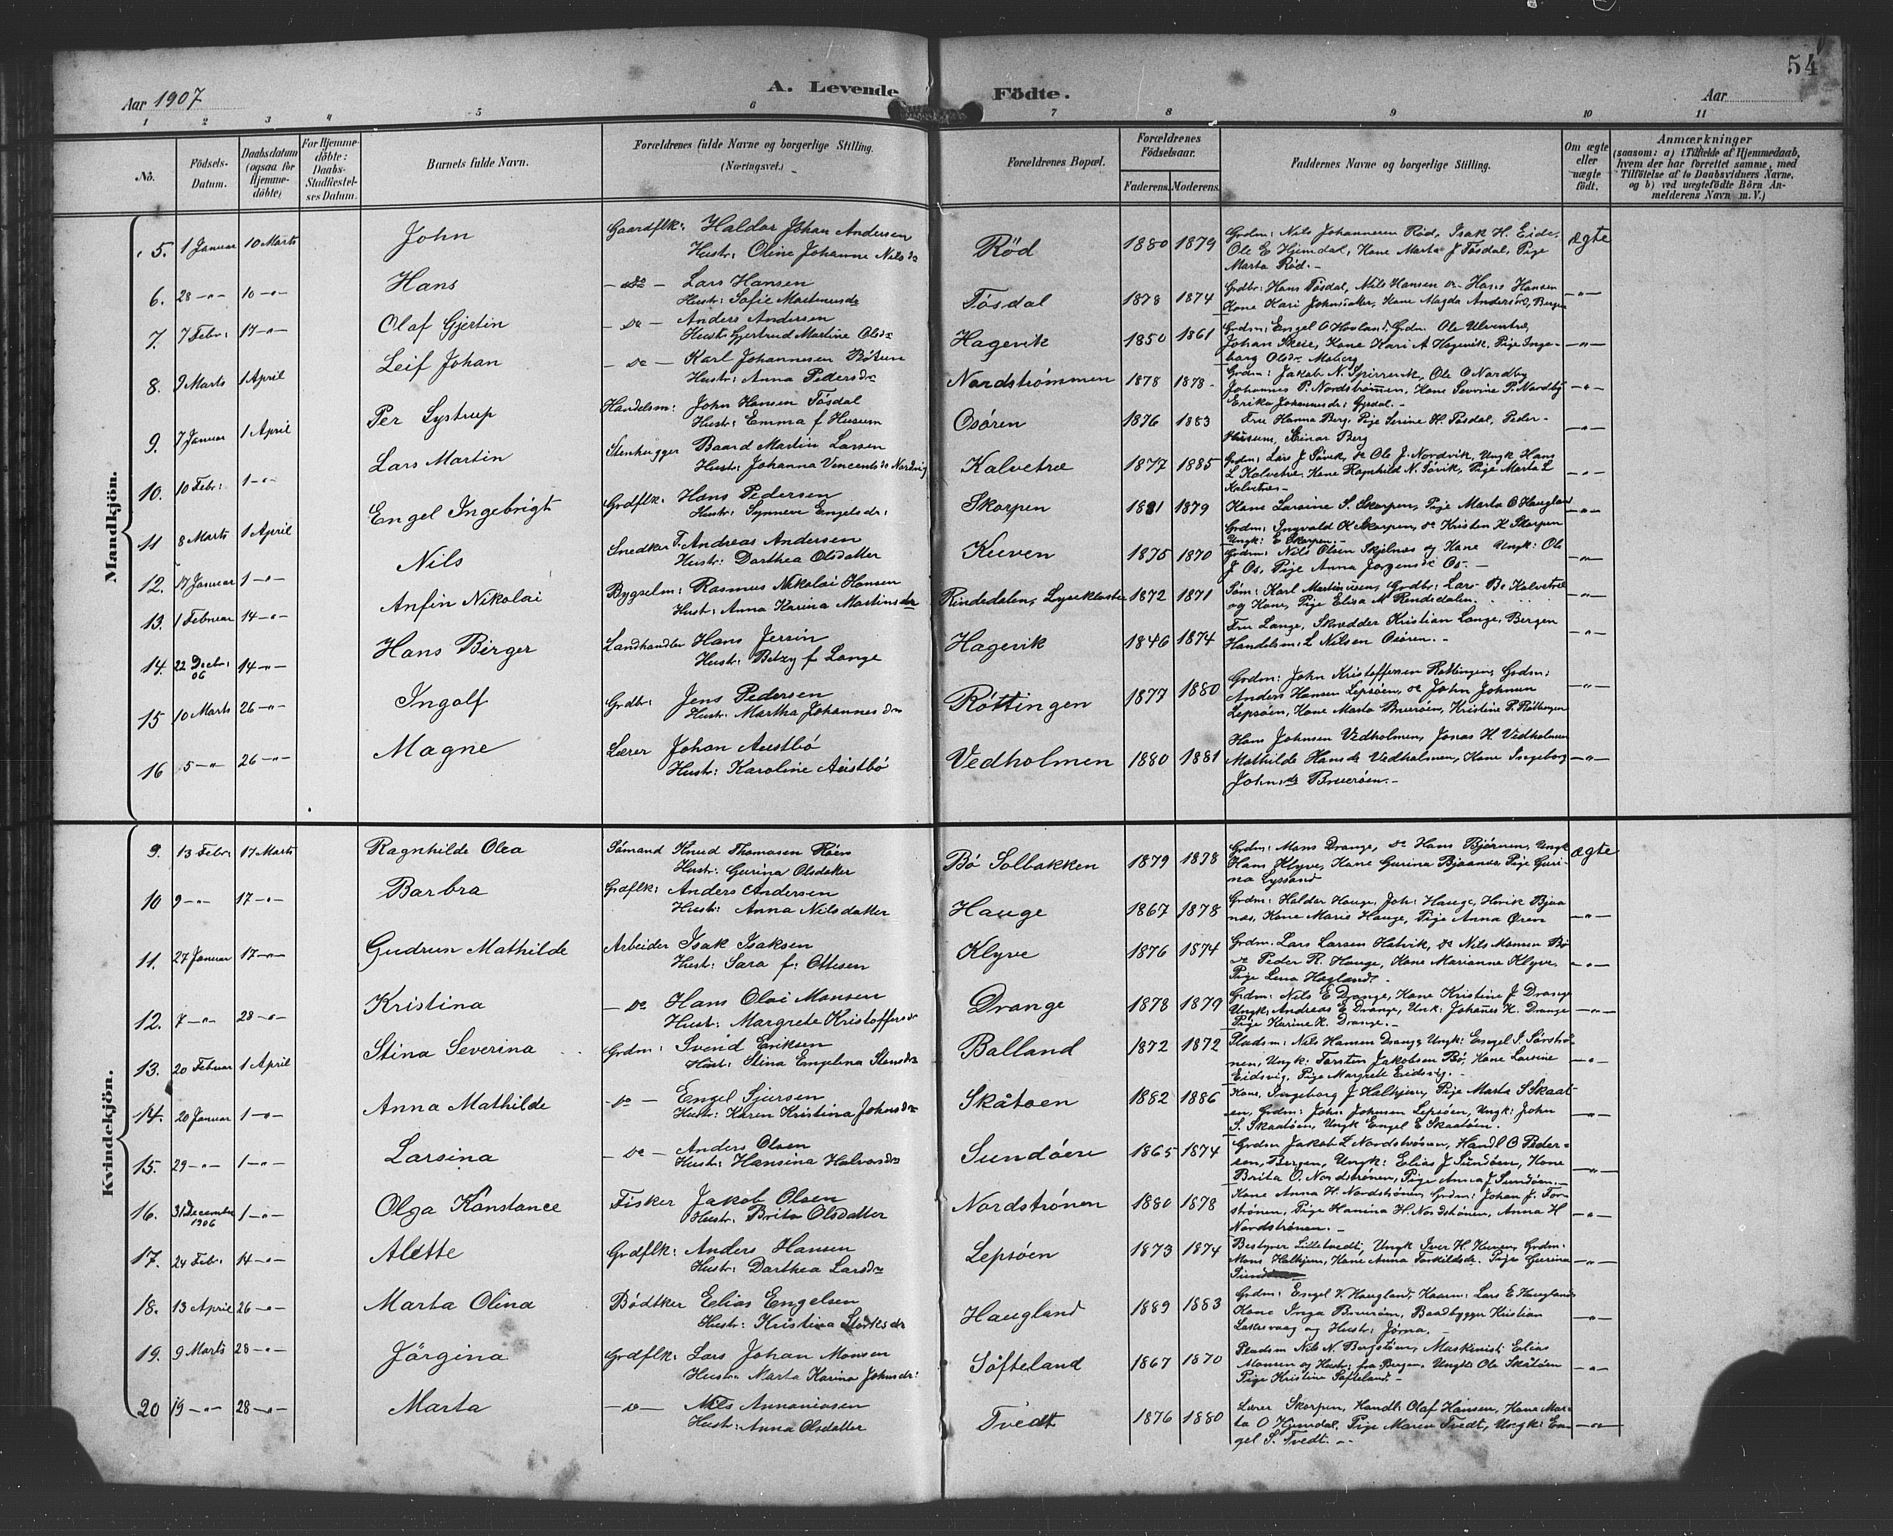 54
Aar 1907
A. Levende Födte.
Aar
1 2 3 4 5 6 7 8 9 10 11
No.
Födsels-Datum.
Daabsdatum (ogsaa for Hjemmedöbte)
For Hjemmedöbte: Daabs-Stadfæstelsers Datum.
Barnets fulde Navn.
Forældrenes fulde Navne og borgerlige Stilling. (Næringsvei.)
Forældrenes Bopæl.
Forældrenes Födselsaar.
Faderens. Moderens.
Faddernes Navne og borgerlige Stilling.
Om ægte eller uægte födt.
Anmærkninger
(saasom: a) i Tilfælde af Hjemmedaab, hvem der har forrettet samme, med Tilföielse af to Daabsvidners Navne, og b) ved uægtefödte Börn Anmelderens Navn m. V.)
Mandkjön.
5. 1 Januar 10 Marts John Gaardflk: Haldor Johan Andersen Rød 1880 1879 Grdm: Nils Johannesen Rød, Isak H. Eide, ægte
Hustr: Oline Johanne Nilsdr Ole E Hjemdal, Kone Marta J Tøsdal, Pige
Marta Rød.
6. 28 -"- 10 -"- Hans - do - Lars Hansen Tøsdal 1878 1874 Grdbr: Hans Tøsdal, Nils Hansen do Hans Hansen -"-
Hustr: Sofie Martinusdr Kone Kari Johnsdtr, Kone Magda Andersdr, Bergen
7. 7 Febr: 17 -"- Olaf Gjertin - do - Anders Andersen Hagevik 1850 1861 Grdm: Engel O Hovland, Grdm. Ole Ulventræ, -"-
Hustr Gjertrud Martine Olsdr Johan Skeie, Kone Kari A Hagevik, Pige Ingeborg Olsdr Moberg
8. 9 Marts 1 April Leif Johan - do - Karl Johannesen Bötun Nordstrømmen 1878 1878 Grdm: Jakob N. Ole O Nordby -"-
Hustr: Anna Pedersdr Johannes P. Nordstrømen, Kone Severine P. Nordby
Erika Johannesdr Gjøsdal.
9. 7 Januar 1 April Per Systrup Handelsm: John Hansen Tøsdal Osøren 1876 1883 Fru Hanna Berg, Pige Serine H. Tøsdal, Peder -"-
Hustr: Emma f Husum Husum, Einar Berg
10. 10 Febr: 1 -"- Lars Martin Stenhugger Baard Martin Larsen Kalvetræ 1877 1885 Grdm: Lars J Søvik, do Ole J Nordvik, Ungk Hans -"-
Hustr: Johanna Vincentsdr Nordvig L Kalvetræ, Kone Ragnhild N. Søvik, Pige Marta L
Kalvetræ
11 8 Marts 1 April Engel Ingebrigt Grdflk: Hans Pedersen Skorpen 1881 1879 Kone Larsine S. Skorpen, Pige Marta O Haugland -"-
Hustr: Synneve Engelsdr: Grdm: Ingvald H Skorpen, do Kristen H Skorpen
Ungk: E Skorpen.
12. 17 Januar 1 -"- Nils Snedker T. Andreas Andersen Kuven 1875 1870 Grdm: Nils Olsen Skjelnes og Kone Ungk: Ole -"-
Hustr: Darthea Olsdatter J Os, Pige Anna Jørgensdr Os.
13. 1 Februar 14 -"- Anfin Nikolai Bygselm: Rasmus Nikolai Hansen Rindedalen, Lyseklostr 1872 1871 Søm: Karl Martinusen, Grdbr: Lars Bs Kalvetræ -"-
Hustr: Anna Karina Martinsdtr og Kone, Pige Elisa M Rendedalen.
14. 22 Decbr: 06 14 -"- Hans Birger Landhandler Hans Jersin Hagevik 1846 1874 Fru Lange, Skrædder Kristian Lange, Bergen -"-
Hustr: Betzy f Lange Handelsm: L Nilsen Osøren.
15 10 Marts 26 -"- Ingolf Grdbr: Jens Pedersen Røttingen 1877 1880 Grdm: John Kristoffersen Røttingen, Grdm: -"-
Hustr: Martha Johannesdr Anders Hansen Lepsøen, do John Johnsen
Lepsøen, Kone Marta Bruerøen, Kristine P. Røttingen
16 5 -"- 26 -"- Magne Lærer Johan Austbø Vedholmen 1880 1881 Hans Johnsen Vedholmen, Jonas H Vedholmen -"-
Hustr: Karoline Austbø Mathilde Hansdr Vedholmen, Kone Ingeborg
Johnsdr Bruerøen.
Kvindekjön.
9. 13 Febr: 17 Marts Ragnhilde Olea Sømand Knud Thomasen Røen Bø Solbakken 1879 1878 Grdm: Mons Drange, do Hans Bjørnen, Ungk ægte
Hustr: Gurina Olsdatter Hans Klyve, Kone Gurina Bjaanes Pige Gurina Lyssand
10 9 -"- 17 -"- Barbra Grdflk: Anders Andersen Hauge 1867 1878 Grdm: Haldor Hauge, Joh: Hauge, Henrik Bjaanæs, Kone Marie Hauge, Pige Anna Øren -"-
Hustr: Anna Nilsdatter
11. 27 Januar 17 -"- Gudrun Mathilde Arbeider Isak Isaksen Klyve 1876 1874 Grdm. Lars Larsen Hatvik, do Nils Monsen Bø -"-
Hustr: Sara f: Ottesen do Peder R. Hauge, Kone Marianne Klyve
Pige Lena Hagland.
12. 7 -"- 28 -"- Kristina - do Hans Olai Monsen Drange 1878 1879 Grdm: Nils E Drange, Kone Kristine J Drange -"-
Hustr: Margrete Kristoffersdr Ungk: Andreas E Drange, Unk: Johanes K. Drange
Pige Karine K. Drange.
13. 20 Februar 1 April Stina Severina Grdm: Svend Eriksen Balland 1872 1872 Pladsm: Nils Hansen Drange Ungk: Engel S. Sørstrønen, Ungk: Torsten Jakobsen Bø, Kone Larsine -"-
Hustr: Stina Engelina Stensdr Eidsvig, Pige Margrete Eidsvig.
14. 20 Januar 1 -"- Anna Mathilde - do - Engel Sjursen Skåtøen 1882 1886 Kone, Ingeborg J Halhjem, Pige Marta S Skaatøen, Grdm: John Johnsen Lepsøen, Ungk: John -"-
Hustr: Karen Kristina Johnsdr S. Skaatøen, Ungk Engel E Skaatøen.
15. 29 -"- 1 -"- Larsina - do - Anders Olsen Sundøen 1865 1874 Grdm Jakob L Nordstrønen, Handl O Pedersen, Bergen, Ungk: Elias J Sundøen, Kone -"-
Hustr: Hansina Halvorsdr Brita O. Nordstrønen, Pige Anna J Sundøen.
16. 31 December 1906 1 -"- Olga Konstance Fisker Jakob Olsen Nordstrønen 1880 1878 Kone Anna H. Nordstrønen Grdm: Johan J. Forstrønen, Pige Hanina H. Nordstrønen, Anna H -"-
Hustr: Brita Olsdatter Nordstrønen.
17. 24 Febr: 14 -"- Alette Grdflk: Anders Hansen Lepsøen 1873 1874 Bestyrer Lilletvedt, Ungk Iver H. Kuven, Grdm: -"-
Hustr: Darthea Larsdr Mons Halhjem, Kone Anna Torkildsdr Pige Gurina
18. 13 April 26 -"- Marta Olina Bødtker Elias Engelsen Haugland 1889 1883 Grdm: Engel V. Haugland, Lars E Haugland -"-
Hustr: Kristina Kone Inga Bruerøen, Baadbygger Kristian
og Hustr: Jørna.
19. 9 Marts 28 -"- Jörgina Grdflk: Lars Johan Monsen Søfteland 1867 1870 Pladsm Nils N. Maskinist Elias -"-
Hustr: Marta Karina Johnsdr: Monsen og Hustr: fra Bergen, Ungk Ole Skåtøen
Pige Kristine Søfteland.
20 19 -"- 28 -"- Marta - do - Nils Annaniasen Tvedt 1876 1880 Lærer Skorpen, Handl: Olaf Hansen, Kone Marta O Hjemdal, Pige Maren Tvedt, Ungk: Engel S. Tvedt. -"-
Hustr: Anna Olsdatter